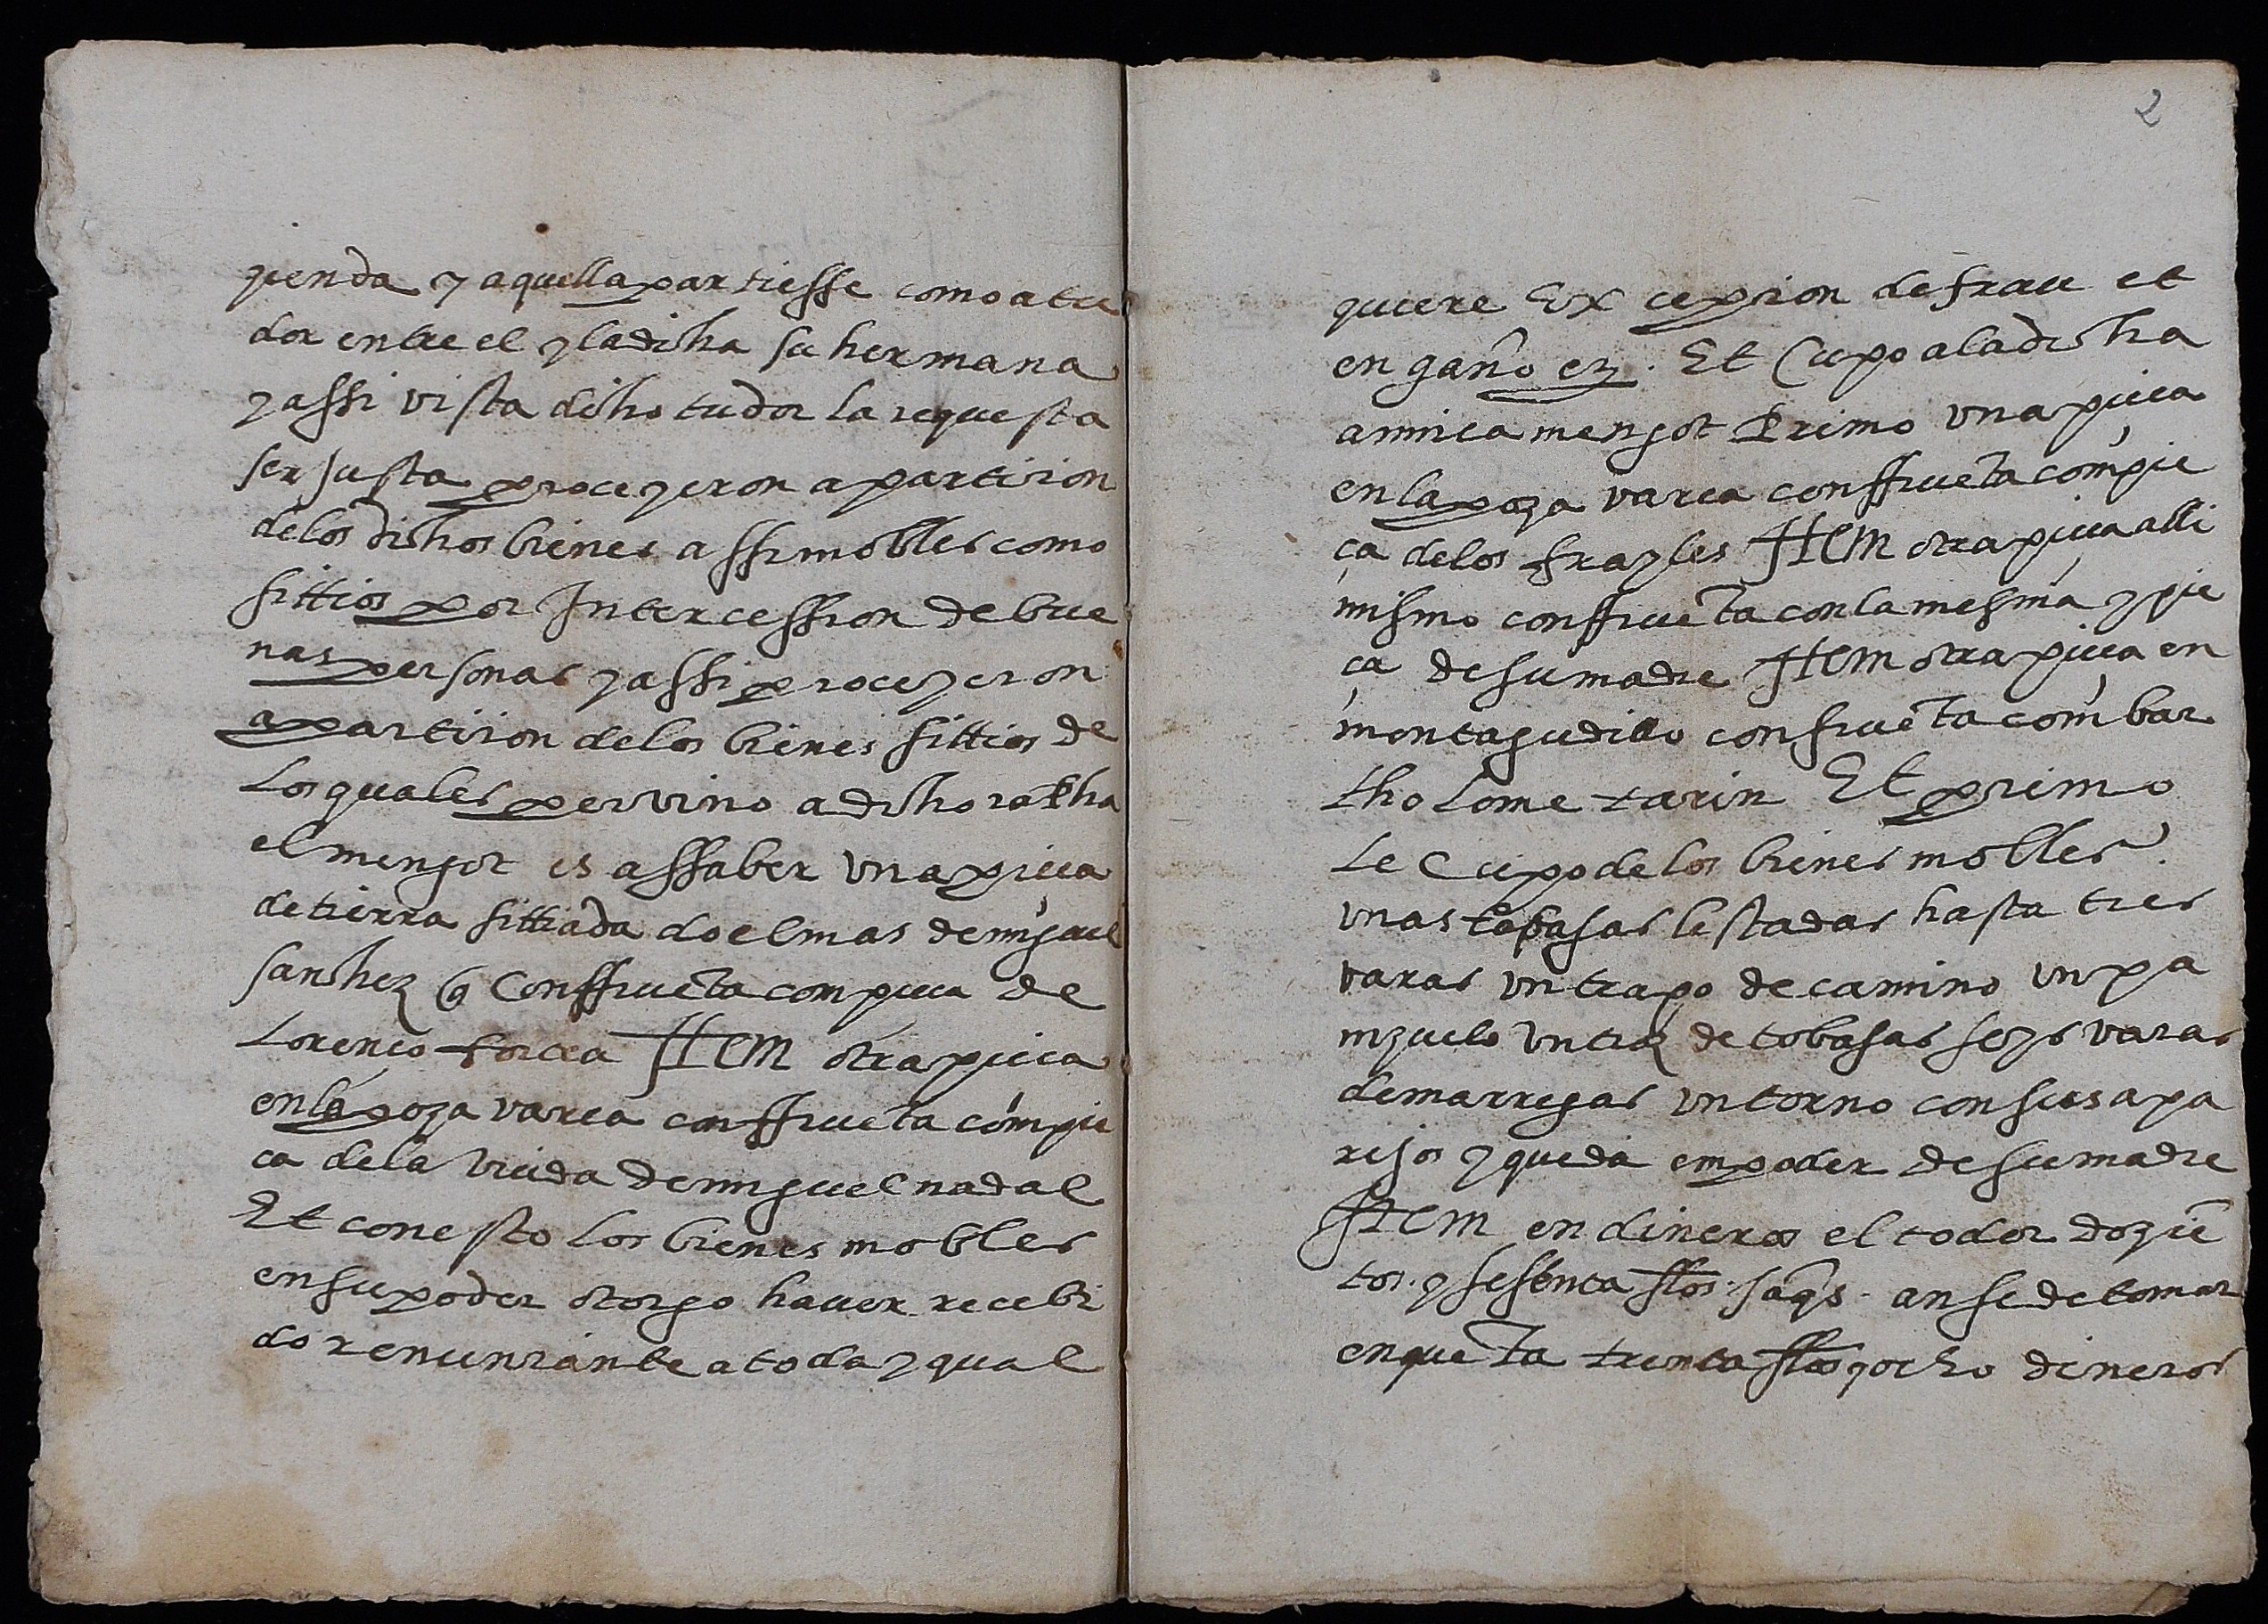 zienda y aquella partiesse como a tu
dor entre el y la dicha su hermana
y assi vista dicho tudor la requesta
ser justa proceyeron a particion
de los dichos bienes assi mobles como
sittios por Intercession de bue
nas personas y assi proceyeron
a particion de los bienes sittios de
los quales pervino a dicho
el menjot es assaber una pieça
de tierra sittiada do el mas de miguel
sanchez q confrueta com pieça de
Lorenço forcea Item otra pieça
en la poza varea confrueta com pie
ça de la viuda de miguel nadal
Et con esto los bienes mobles
en su poder otorgo haver recebi
do renunciante a toda y qual
2
quiere Excepcion de frau et
engaño ez. Et Cupo a la dicha
amica menjot Primo una pieça
en la poza varea confrueta com pie
ça de los frayles Item otra pieça alli
mismo confrueta con la mesma y pie
ça de su madre Item otra pieça en
montagudillo confrueta com bar
tholome tarin Et primo
le Cupo de los bienes mobles
unas tobajas listadas hasta tres
varas un trapo de camino un pa
nizuelo un troz de tobajas seys varas
de marregas un torno con sus apa
rejos y queda em poder de su madre
Item en dineros el todor dozie
tos y sesenta sſos jaqs. an se de tomar
en queta trenta sſos y ocho dineros